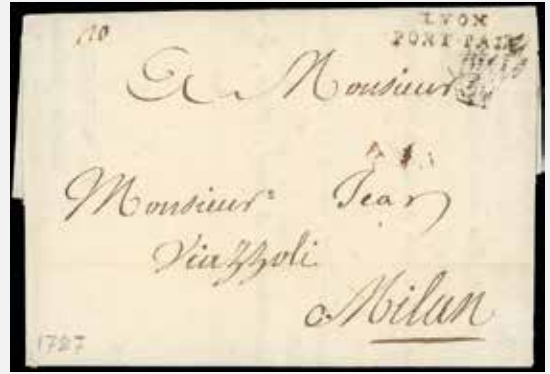 LYON
PORT PAYE
A Monsieur
Monsieur Jean
Viazzoli
Milan
1787